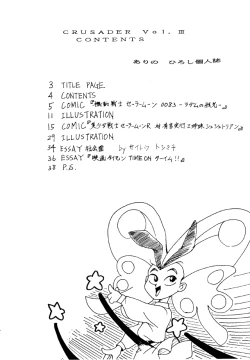 CRUSADER Vol.Ⅲ
CONTENTS
ありの ひろし個人誌
3 TITLE PAGE
4 CONTENTS
5 COMIC『機動戦士セーラームーン 0083 -ラダムの残光-』
11 ILLUSTRATION
15 COMIC『美少女戦士セーラームーンR 対 有言実行三姉妹シュシュトリアン』
29 ILLUSTRATION
34 ESSAY by サイトウ トシミチ
36 ESSAY『映画 TIME ON タイム!!』
38 P.S.